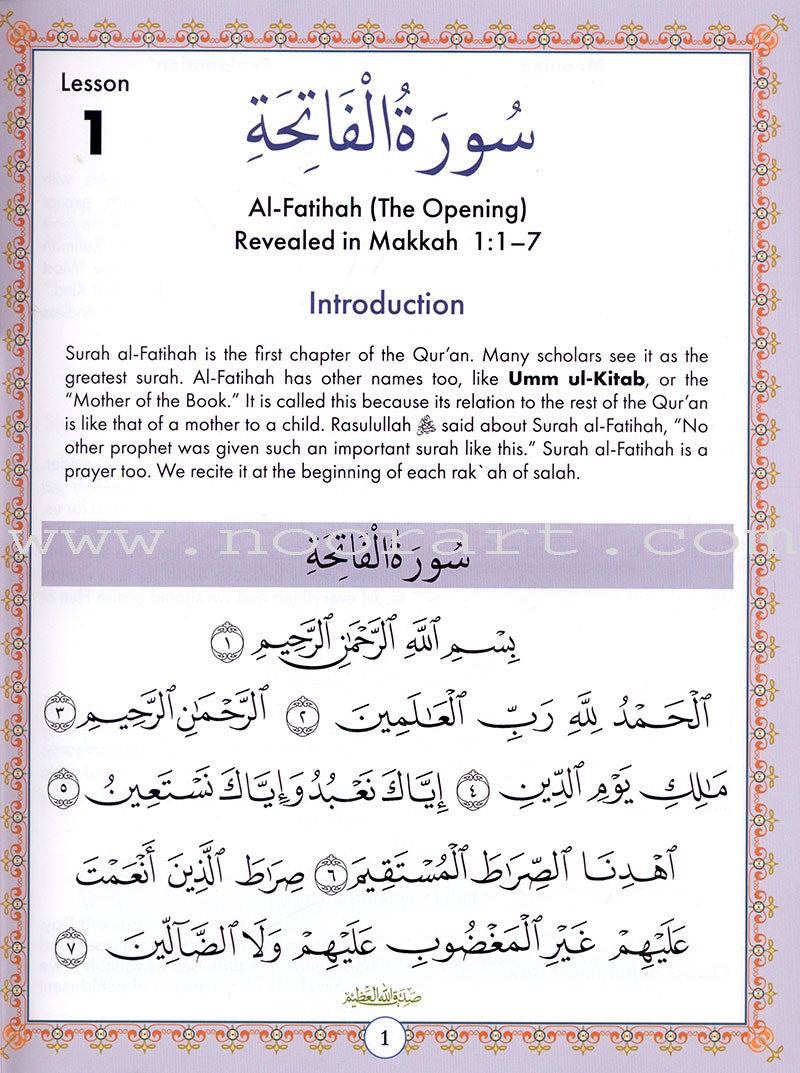 Lesson
1
سُورَةُ الْفَاتِحَةِ
Al-Fatihah (The Opening)
Revealed in Makkah 1:1–7
Introduction
Surah al-Fatihah is the first chapter of the Qur’an. Many scholars see it as the
greatest surah. Al-Fatihah has other names too, like Umm ul-Kitab, or the
“Mother of the Book.” It is called this because its relation to the rest of the Qur’an
is like that of a mother to a child. Rasulullah ﷺ said about Surah al-Fatihah, “No
other prophet was given such an important surah like this.” Surah al-Fatihah is a
prayer too. We recite it at the beginning of each rak`ah of salah.
www.noorart.com
سُورَةُ الْفَاتِحَةِ
بِسْمِ ٱللَّهِ ٱلرَّحْمَٰنِ ٱلرَّحِيمِ ١
ٱلْحَمْدُ لِلَّهِ رَبِّ ٱلْعَٰلَمِينَ ٢ ٱلرَّحْمَٰنِ ٱلرَّحِيمِ ٣
مَٰلِكِ يَوْمِ ٱلدِّينِ ٤ إِيَّاكَ نَعْبُدُ وَإِيَّاكَ نَسْتَعِينُ ٥
ٱهْدِنَا ٱلصِّرَٰطَ ٱلْمُسْتَقِيمَ ٦ صِرَٰطَ ٱلَّذِينَ أَنْعَمْتَ
عَلَيْهِمْ غَيْرِ ٱلْمَغْضُوبِ عَلَيْهِمْ وَلَا ٱلضَّآلِّينَ ٧
صدق الله العظيم
1